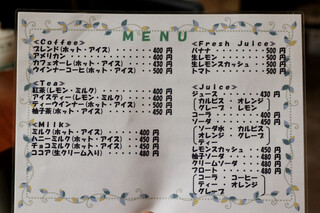 MENU
<Coffee>
ブレンド(ホット・アイス)・・・・・400 円
アメリカン・・・・・・・・・・400 円
カフェオーレ(ホット・アイス)・・・450 円
ウインナーコーヒ(ホット・アイス)・・500 円
<Tea>
紅茶(レモン・ミルク)・・・・・・400 円
アイスティー(レモン・ミルク)・・・400 円
ティーウインナー(ホット・アイス)・・500 円
柚子茶(ホット・アイス)・・・・・450 円
<Milk>
ミルク(ホット・アイス)・・・・・400 円
ハニーミルク(ホット・アイス)・・・450 円
チョコミルク(ホット・アイス)・・・450 円
ココア(生クリーム入り)・・・・・480 円
<Fresh Juice>
バナナ・・・・・・・500 円
生レモン・・・・・・500 円
生レモンスカッシュ・・・500 円
トマト・・・・・・・500 円
<Juice>
ジュース・・・・・・430 円
カルピス・オレンジ
グレープ・レモン
コーラ・・・・・・・450 円
ソーダ・・・・・・・450 円
ソーダ水・カルピス
グレープ・オレンジ
ティー
レモンスカッシュ・・・450 円
柚子ソーダ・・・・・480 円
クリームソーダ・・・480 円
フロート・・・・・・480 円
コーラ・コーヒー
ティー・オレンジ
グレープ